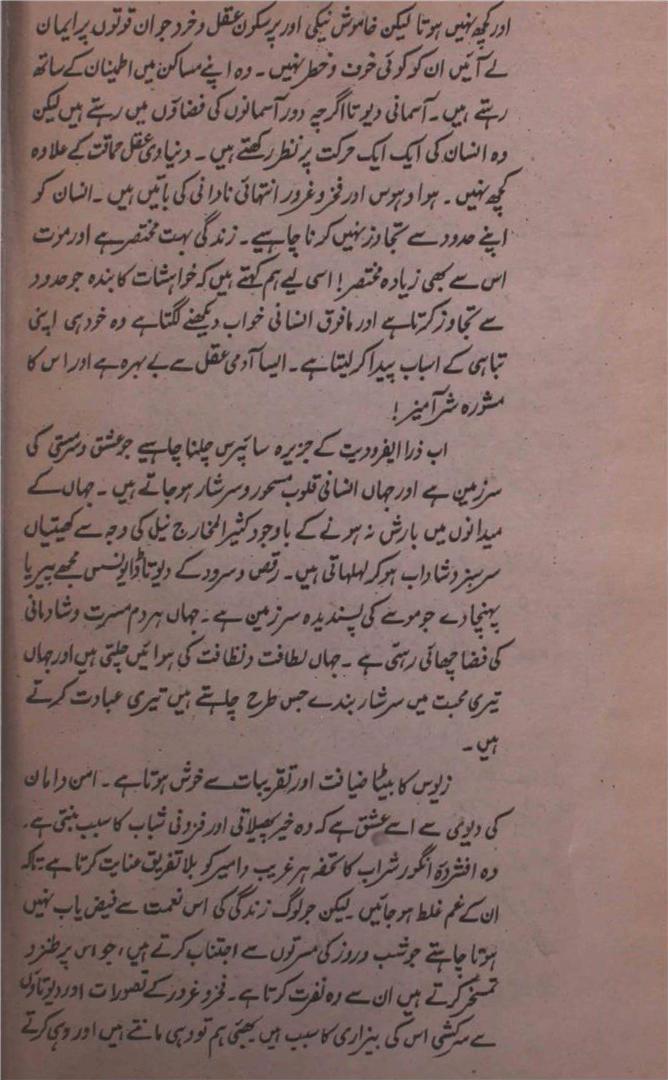 اور کچھ نہیں ہوتا لیکن خاموش نیکی اور پرسکون عقل و خرد جو ان قوتوں پر ایمان
لے آئیں ان کو کوئی خوف و خطر نہیں۔ وہ اپنے مساکن میں اطمینان کے ساتھ
رہتے ہیں۔ آسمانی دیوتا اگرچہ دور آسمانوں کی فضاؤں میں رہتے ہیں لیکن
وہ انسان کی ایک ایک حرکت پر نظر رکھتے ہیں۔ دنیاوی عقل حماقت کے علاوہ
کچھ نہیں۔ ہوا و ہوس اور فخر و غرور انتہائی نادانی کی باتیں ہیں۔ انسان کو
اپنے حدود سے تجاوز نہیں کرنا چاہیے۔ زندگی بہت مختصر ہے اور موت
اس سے بھی زیادہ مختصر! اسی لیے ہم کہتے ہیں کہ خواہشات کا بندہ جو حدود
سے تجاوز کرتا ہے اور مافوق انسانی خواب دیکھنے لگتا ہے وہ خود ہی اپنی
تباہی کے اسباب پیدا کر لیتا ہے۔ ایسا آدمی عقل سے بے بہرہ ہے اور اس کا
مشورہ شر آمیز!
اب ذرا ایفرودیت کے جزیرہ سائپرس چلنا چاہیے جو عشق و سرمستی کی
سرزمین ہے اور جہاں انسانی قلوب مسحور و سرشار ہو جاتے ہیں۔ جہاں کے
میدانوں میں بارش نہ ہونے کے باوجود کثیر المخارج نیل کی وجہ سے کھیتیاں
سرسبز و شاداب ہو کر لہلہاتی ہیں۔ رقص و سرود کے دیوتا ڈایونسس مجھے پیریا
پہنچا دے جو موسے کی پسندیدہ سرزمین ہے۔ جہاں ہر دم مسرت و شادمانی
کی فضا چھائی رہتی ہے۔ جہاں لطافت و نظافت کی ہوائیں چلتی ہیں اور جہاں
تیری محبت میں سرشار بندے جس طرح چاہتے ہیں تیری عبادت کرتے
ہیں۔
زیوس کا بیٹا ضیافت اور تقریبات سے خوش ہوتا ہے۔ امن و امان
کی دیوی سے اسے عشق ہے کہ وہ خیر پھیلاتی اور فزونی شباب کا سبب بنتی ہے۔
وہ افشردۂ انگور شراب کا تحفہ ہر غریب و امیر کو بلا تفریق عنایت کرتا ہے تاکہ
ان کے غم غلط ہو جائیں۔ لیکن جو لوگ زندگی کی اس نعمت سے فیض یاب نہیں
ہونا چاہتے جو شب و روز کی مسرتوں سے اجتناب کرتے ہیں، جو اس پر طنز و
تمسخر کرتے ہیں ان سے وہ نفرت کرتا ہے۔ فخر و غرور کے تصورات اور دیوتاؤں
سے سرکشی اس کی بیزاری کا سبب ہیں بھئی ہم تو وہی مانتے ہیں اور وہی کرتے